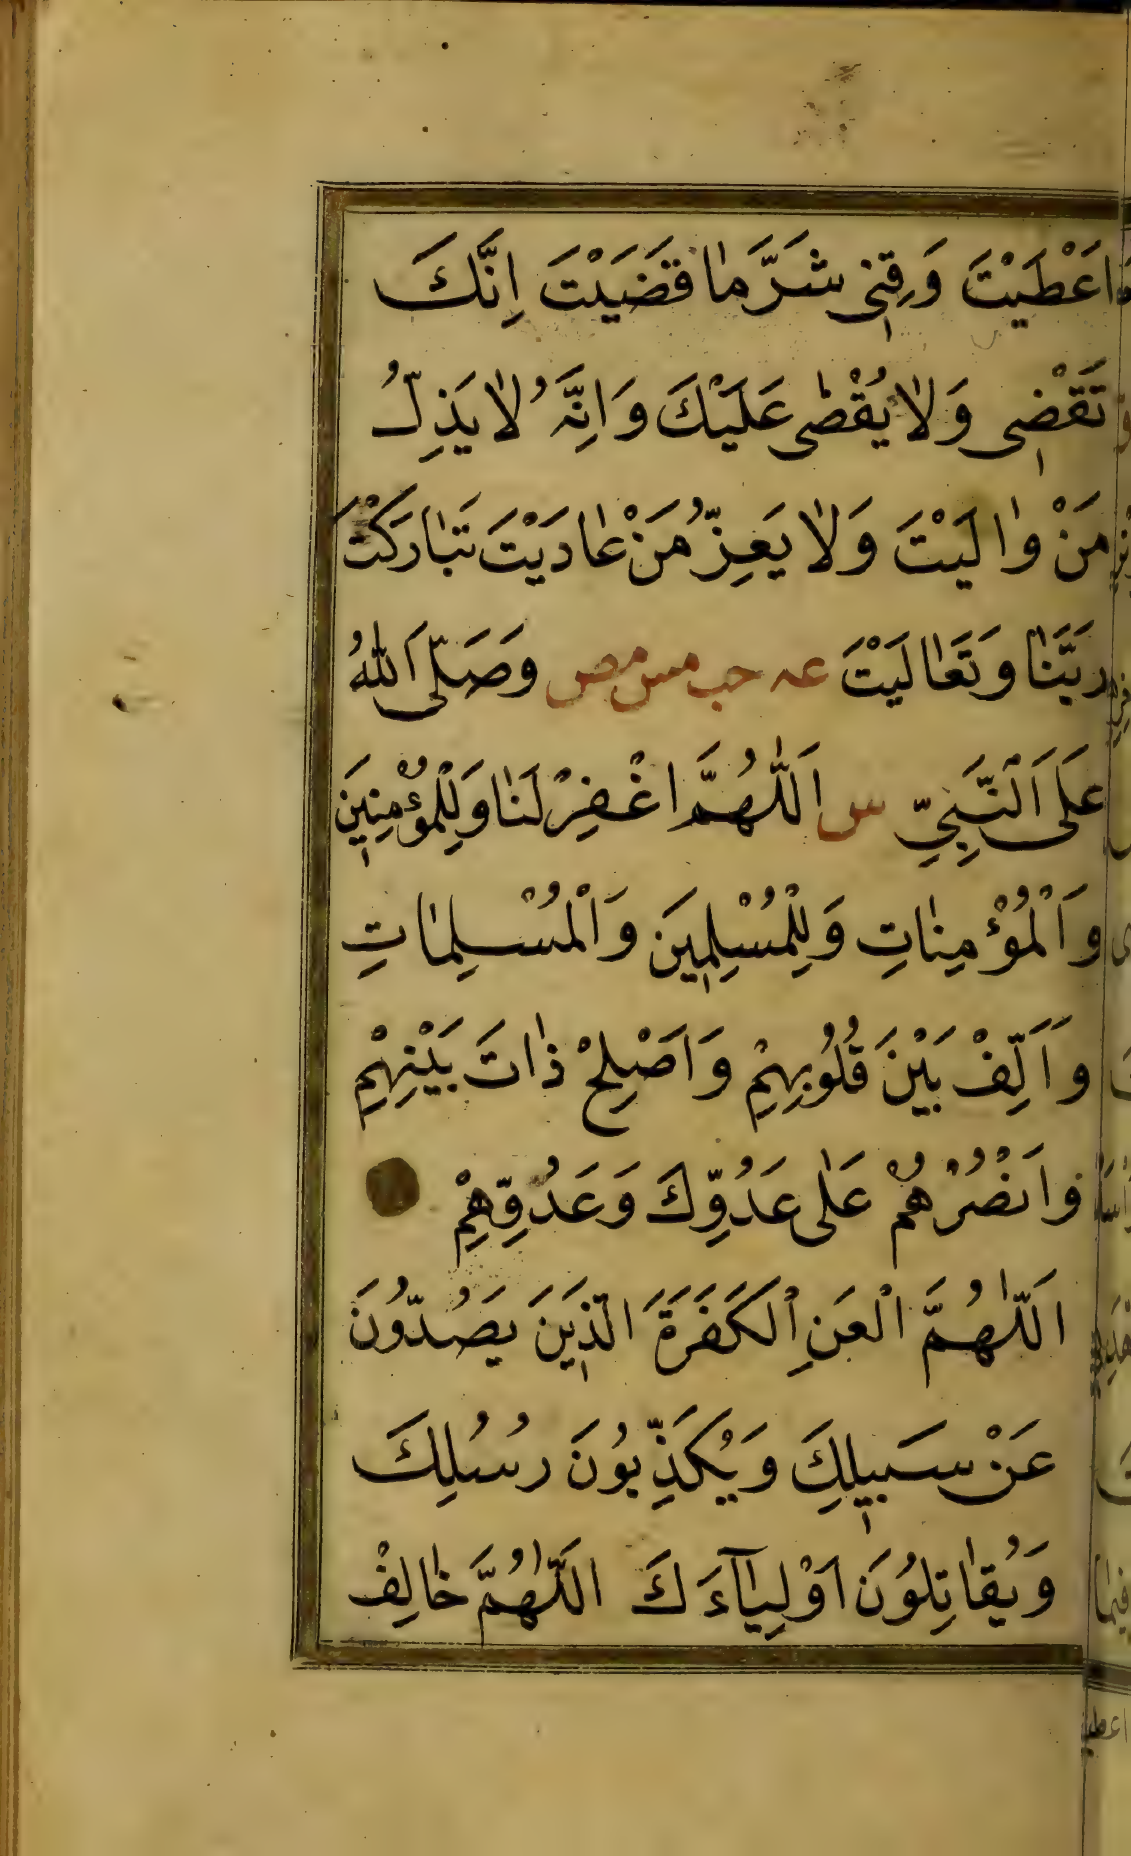 اَعْطَيْتَ وَقِنِي شَرَّ مَا قَضَيْتَ اِنَّكَ
تَقْضِي وَلَا يُقْضٰى عَلَيْكَ وَاِنَّهُ لَا يَذِلُّ
مَنْ وَالَيْتَ وَلَا يَعِزُّ مَنْ عَادَيْتَ تَبَارَكْتَ
رَبَّنَا وَتَعَالَيْتَ عه حب مس مص وَصَلَّى اَللّٰهُ
عَلَى اَلْنَّبِيِّ س اَللّٰهُمَّ اغْفِرْ لَنَا وَلِلْمُؤْمِنِينَ
وَاَلْمُؤْمِنَاتِ وَلِلْمُسْلِمِينَ وَاَلْمُسْلِمَاتِ
وَاَلِّفْ بَيْنَ قُلُوبِهِمْ وَاَصْلِحْ ذَاتَ بَيْنِهِمْ
وَانْصُرْهُمْ عَلٰى عَدُوِّكَ وَعَدُوِّهِمْ
اَللّٰهُمَّ الْعَنِ اْلكَفَرَةَ الَّذِينَ يَصُدُّونَ
عَنْ سَبِيلِكَ وَيُكَذِّبُونَ رُسُلِكَ
وَيُقَاتِلُونَ اَوْلِيَآءَكَ اللّٰهُمَّ خَالِفْ